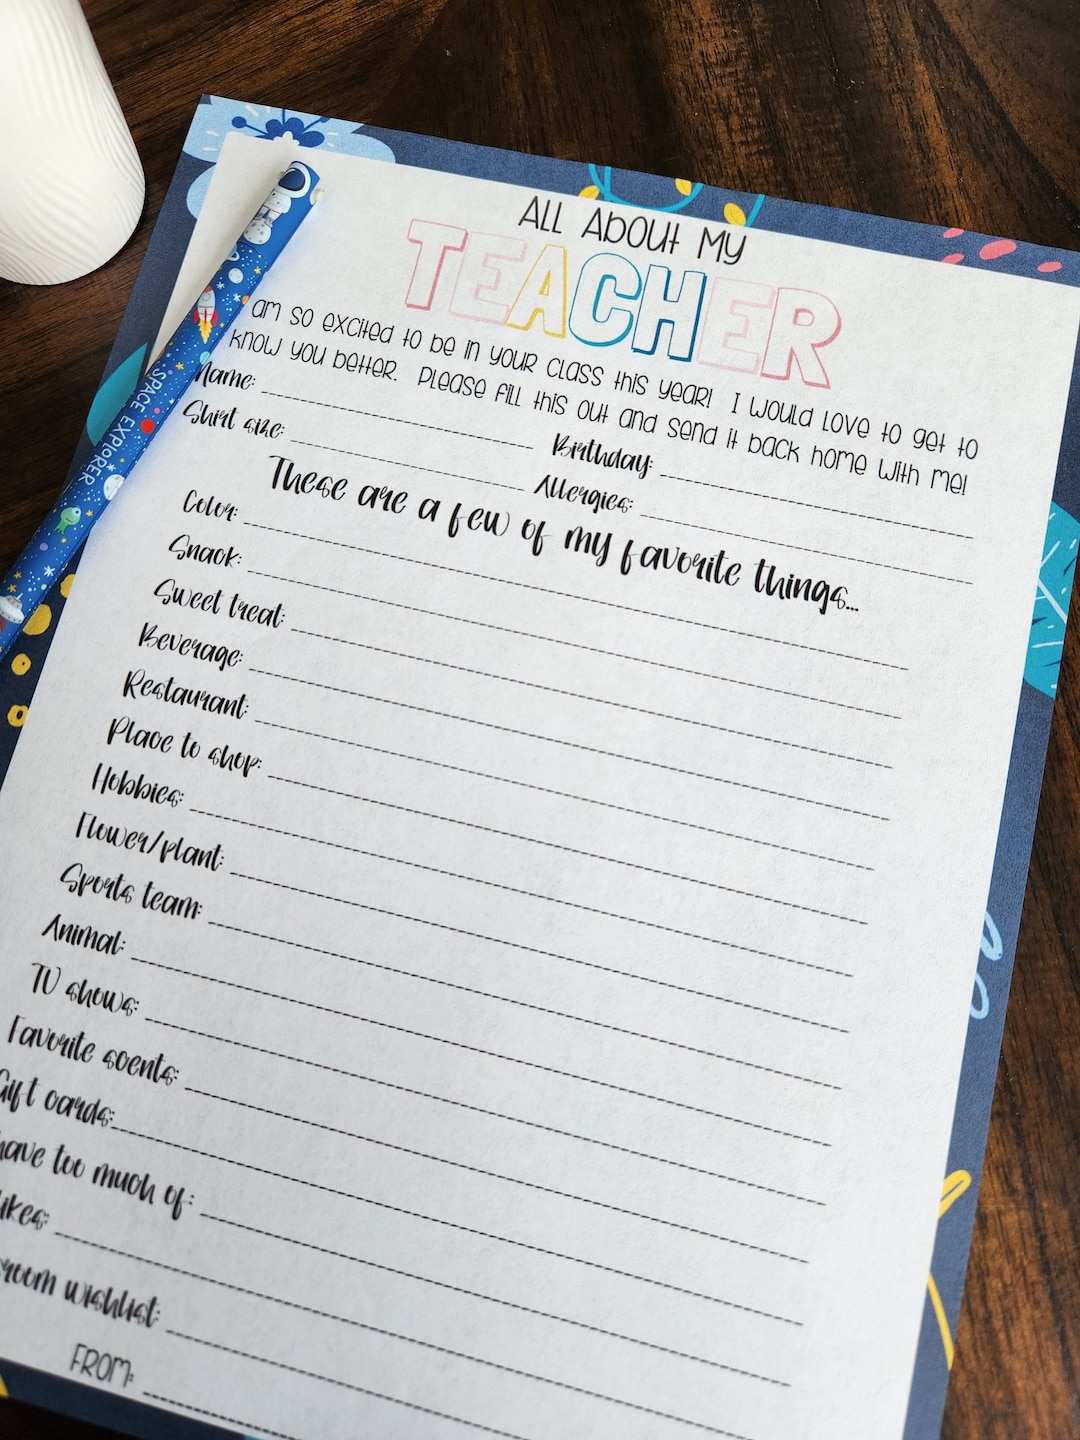 ALL ABOUT MY
TEACHER
am so excited to be in your class this year! I would love to get to
know you better. Please fill this out and send it back home with me!
Name: Birthday:
Shirt size: Allergies:
These are a few of my favorite things...
Color:
Snack:
Sweet treat:
Beverage:
Restaurant:
Place to shop:
Hobbies:
Flower/plant:
Sports team:
Animal:
TV shows:
Favorite scents:
Gift cards:
have too much of:
likes:
room wishlist:
FROM:
SPACE EXPLORER